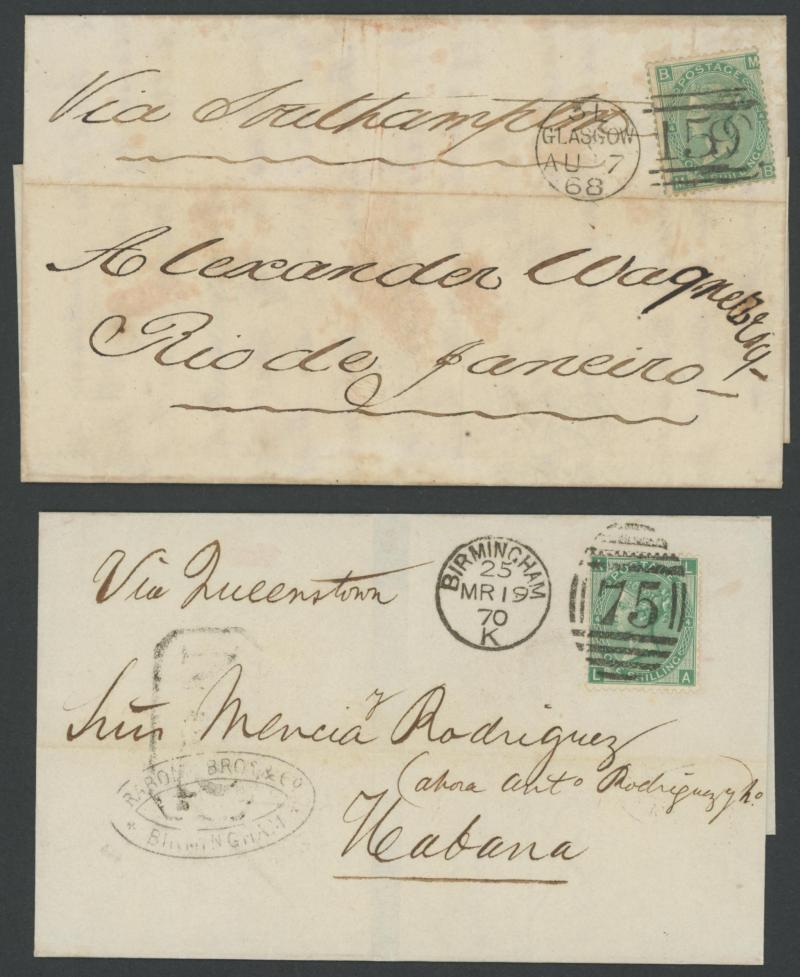 Via Southampton
SL
GLASGOW
AU 7
68
B M
POSTAGE
159
ONE SHILLING
M B
Alexander Wagner Esq
Rio de Janeiro
Via Queenstown
BIRMINGHAM
25
MR 19
70
K
L
75
ONE SHILLING
L A
Mencia y Rodriguez
(ahora Anto Rodriguez y ho
BROS & Co
BIRMINGHAM
Habana